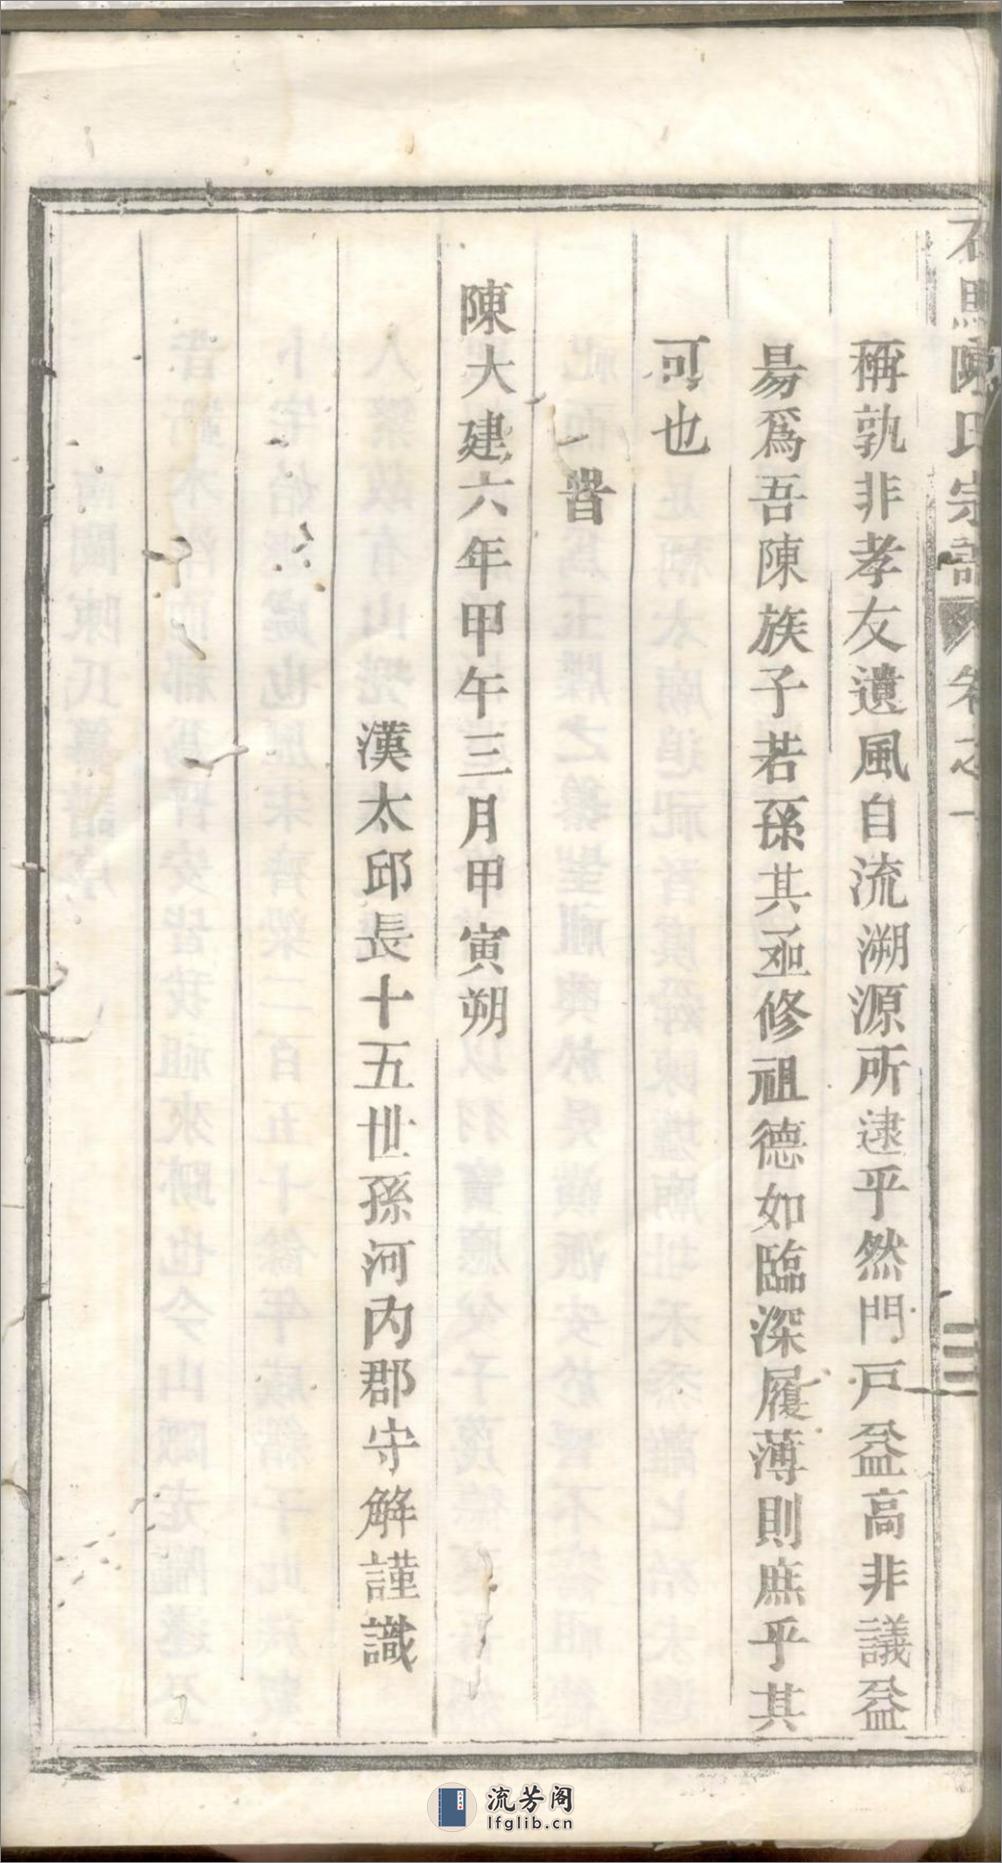 陳氏宗譜 卷之一
三
稱孰非孝友遺風自流溯源所逮乎然門戶益高非議益
易爲吾陳族子若孫其亟修祖德如臨深履薄則庶乎其
可也
旹
陳大建六年甲午三月甲寅朔
漢太邱長十五世孫河內郡守解謹識
流芳阁
lfglib.cn